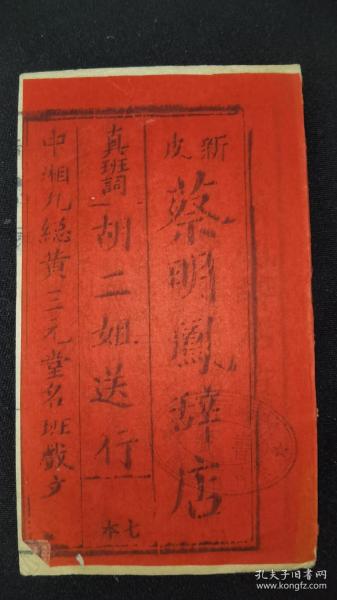 新皮
蔡明鳳辞店
真班詞
胡二姐送行
七本
中湘九総黄三元堂名班戯文
孔夫子旧书网